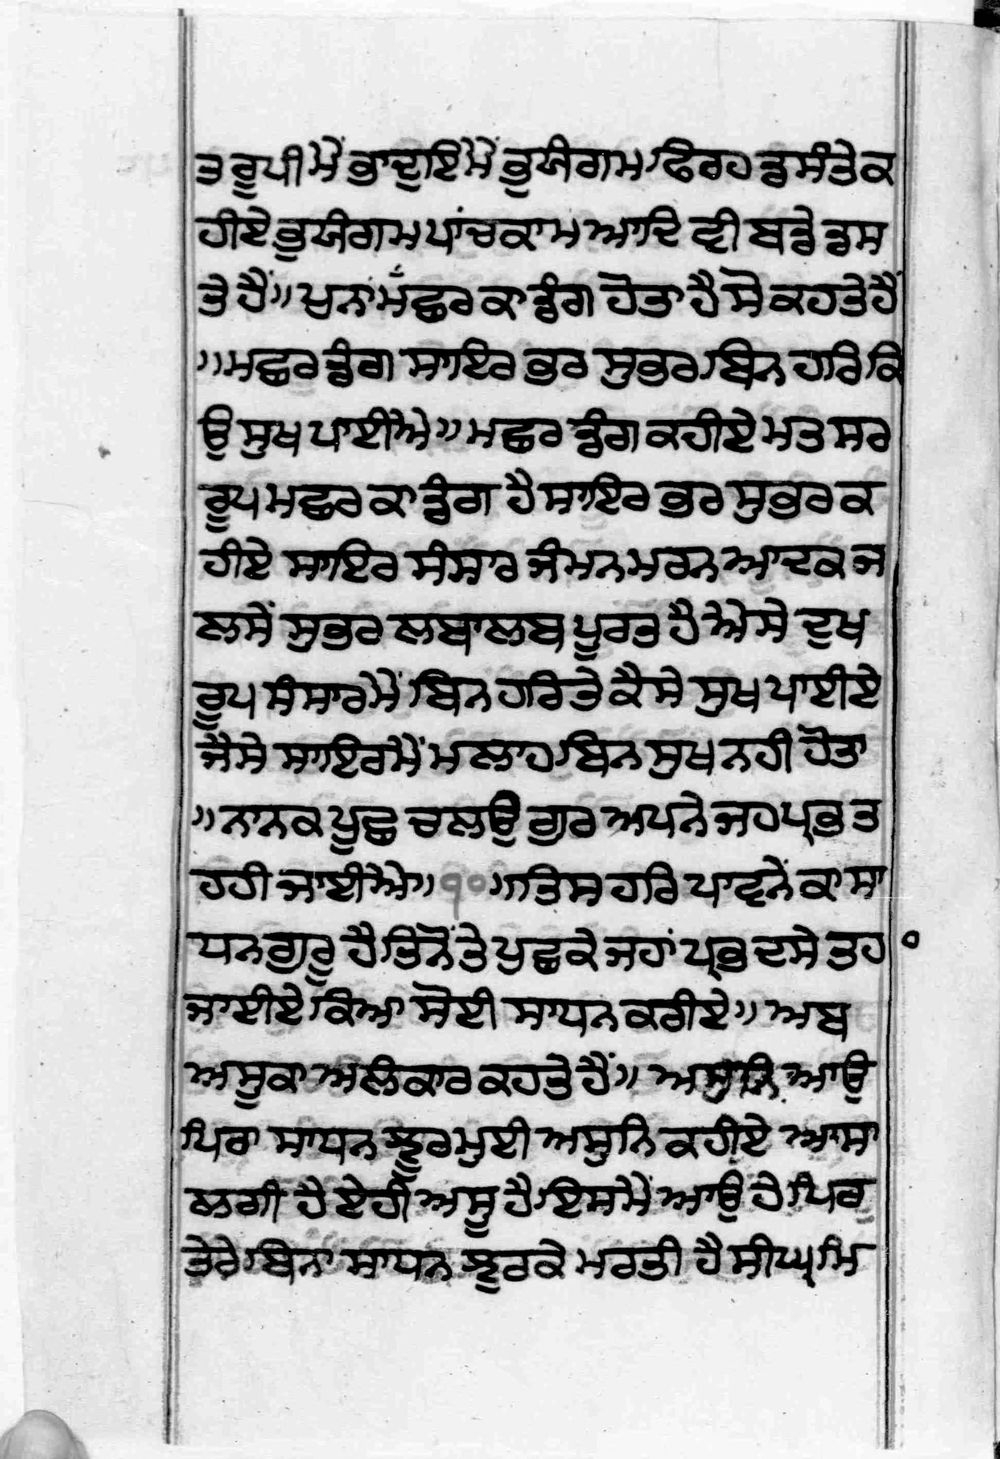 ਤ ਰੂਪੀ ਮੇਂ ਭਾਦੁਇ ਮੇਂ ਭੂਯੰਗਮ ਫਿਰਹ ਡਸੰਤੇ ਕ
ਹੀਏ ਭੂਯੰਗਮ ਪਾਂਚ ਕਾਮ ਆਦਿ ਵੀ ਬਡੇ ਡਸ
ਤੇ ਹੈਂ॥ ਪੁਨਾ ਮੱਛਰ ਕਾ ਡੰਗ ਹੋਤਾ ਹੈ ਸੋ ਕਹਤੇ ਹੈਂ
॥ਮਛਰ ਡੰਗ ਸਾਇਰ ਭਰ ਸੁਭਰ ਬਿਨ ਹਰਿ ਕਿ
ਉ ਸੁਖ ਪਾਈਐ॥ ਮਛਰ ਡੰਗ ਕਹੀਏ ਮਤਸਰ
ਰੂਪ ਮਛਰ ਕਾ ਡੰਗ ਹੈ ਸਾਇਰ ਭਰ ਸੁਭਰ ਕ
ਹੀਏ ਸਾਇਰ ਸੰਸਾਰ ਜੰਮਨ ਮਰਨ ਆਦਕ ਜ
ਲਸੇਂ ਸੁਭਰ ਲਬਾਲਬ ਪੂਰਤ ਹੈ ਐਸੇ ਦੁਖ
ਰੂਪ ਸੰਸਾਰ ਮੇਂ ਬਿਨ ਹਰਿ ਤੇ ਕੈਸੇ ਸੁਖ ਪਾਈਏ
ਜੈਸੇ ਸਾਇਰ ਮੇਂ ਮਲਾਹ ਬਿਨ ਸੁਖ ਨਹੀਂ ਹੋਤਾ
॥ਨਾਨਕ ਪੂਛ ਚਲਉ ਗੁਰ ਅਪਨੇ ਜਹ ਪ੍ਰਭ ਤ
ਹ ਹੀ ਜਾਈਐ॥੧੦॥ ਤਿਸ ਹਰਿ ਪਾਵਨੇਂ ਕਾ ਸਾ
ਧਨ ਗੁਰੂ ਹੈ ਤਿੰਨੋਂ ਤੇ ਪੁਛਕੇ ਜਹਾਂ ਪ੍ਰਭ ਦਸੇ ਤਹ
ਜਾਈਏ ਕਿਆ ਸੋਈ ਸਾਧਨ ਕਰੀਏ॥ ਅਬ
ਅਸੂ ਕਾ ਅਲੰਕਾਰ ਕਹਤੇ ਹੈਂ॥ ਅਸੁਨਿ ਆਉ
ਪਿਰਾ ਸਾਧਨ ਝੂਰ ਮੁਈ ਅਸੁਨਿ ਕਹੀਏ ਆਸਾ
ਲਗੀ ਹੈ ਏਹੀ ਅਸੂ ਹੈ ਇਸਮੇਂ ਆਉ ਹੇ ਪਿਰ
ਤੇਰੇ ਬਿਨਾ ਸਾਧਨ ਝੂਰਕੇ ਮਰਤੀ ਹੈ ਸੀਘ੍ਰ ਮਿ